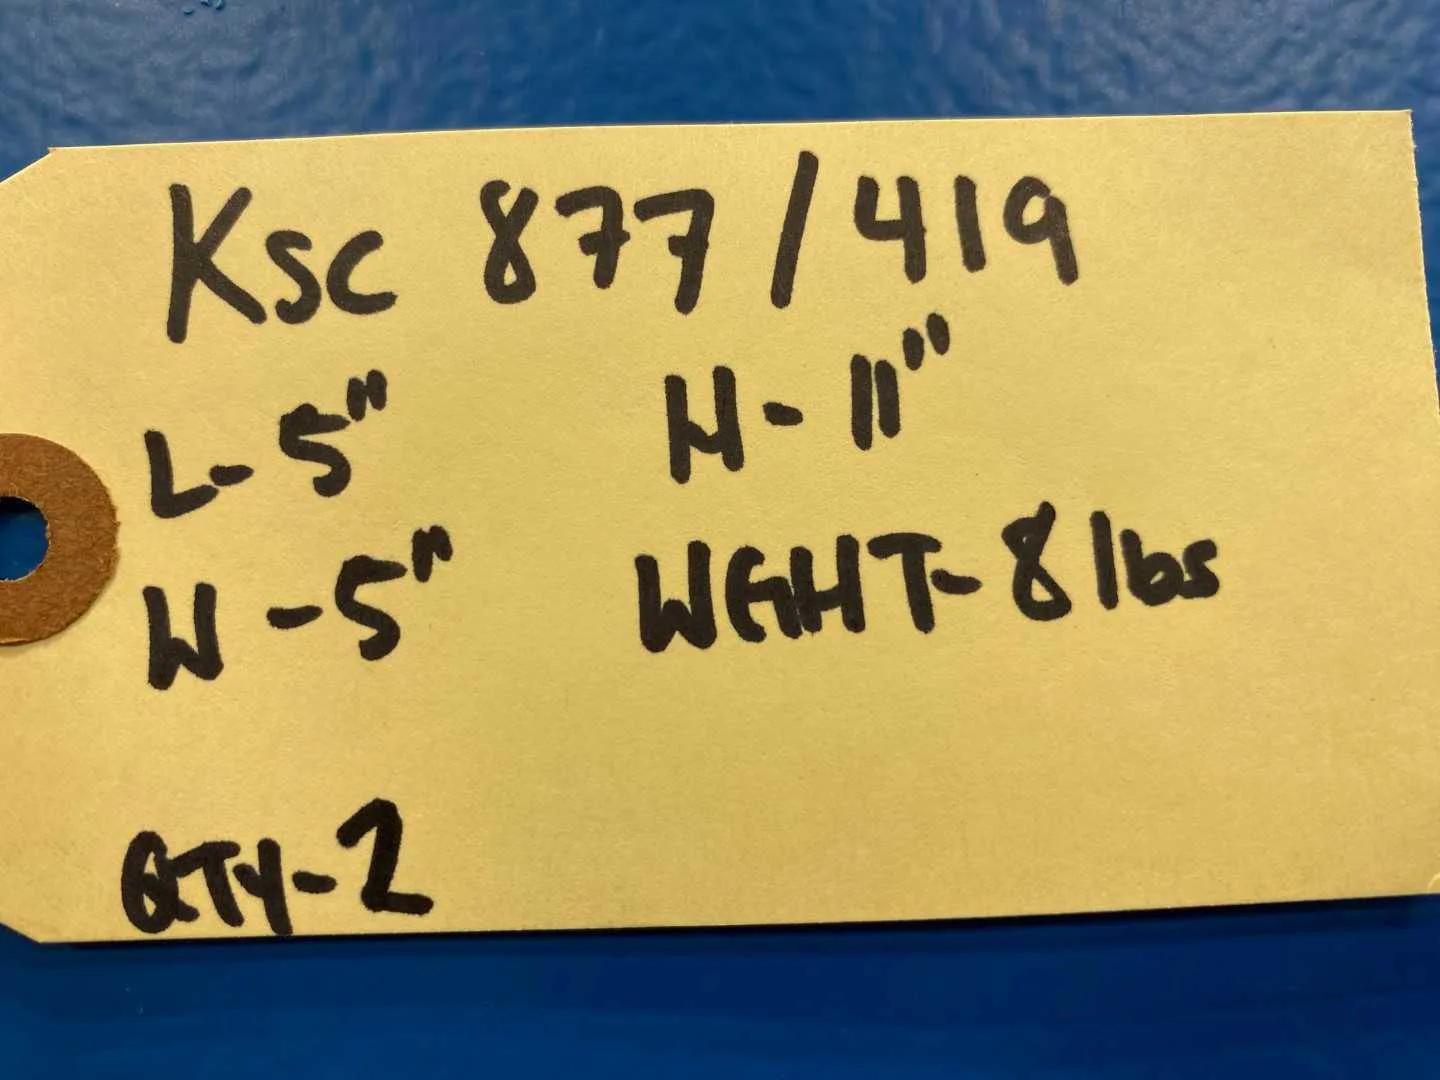 KSC 877/419
L-5" H-11"
W-5" WGHT-8 lbs
QTY-2